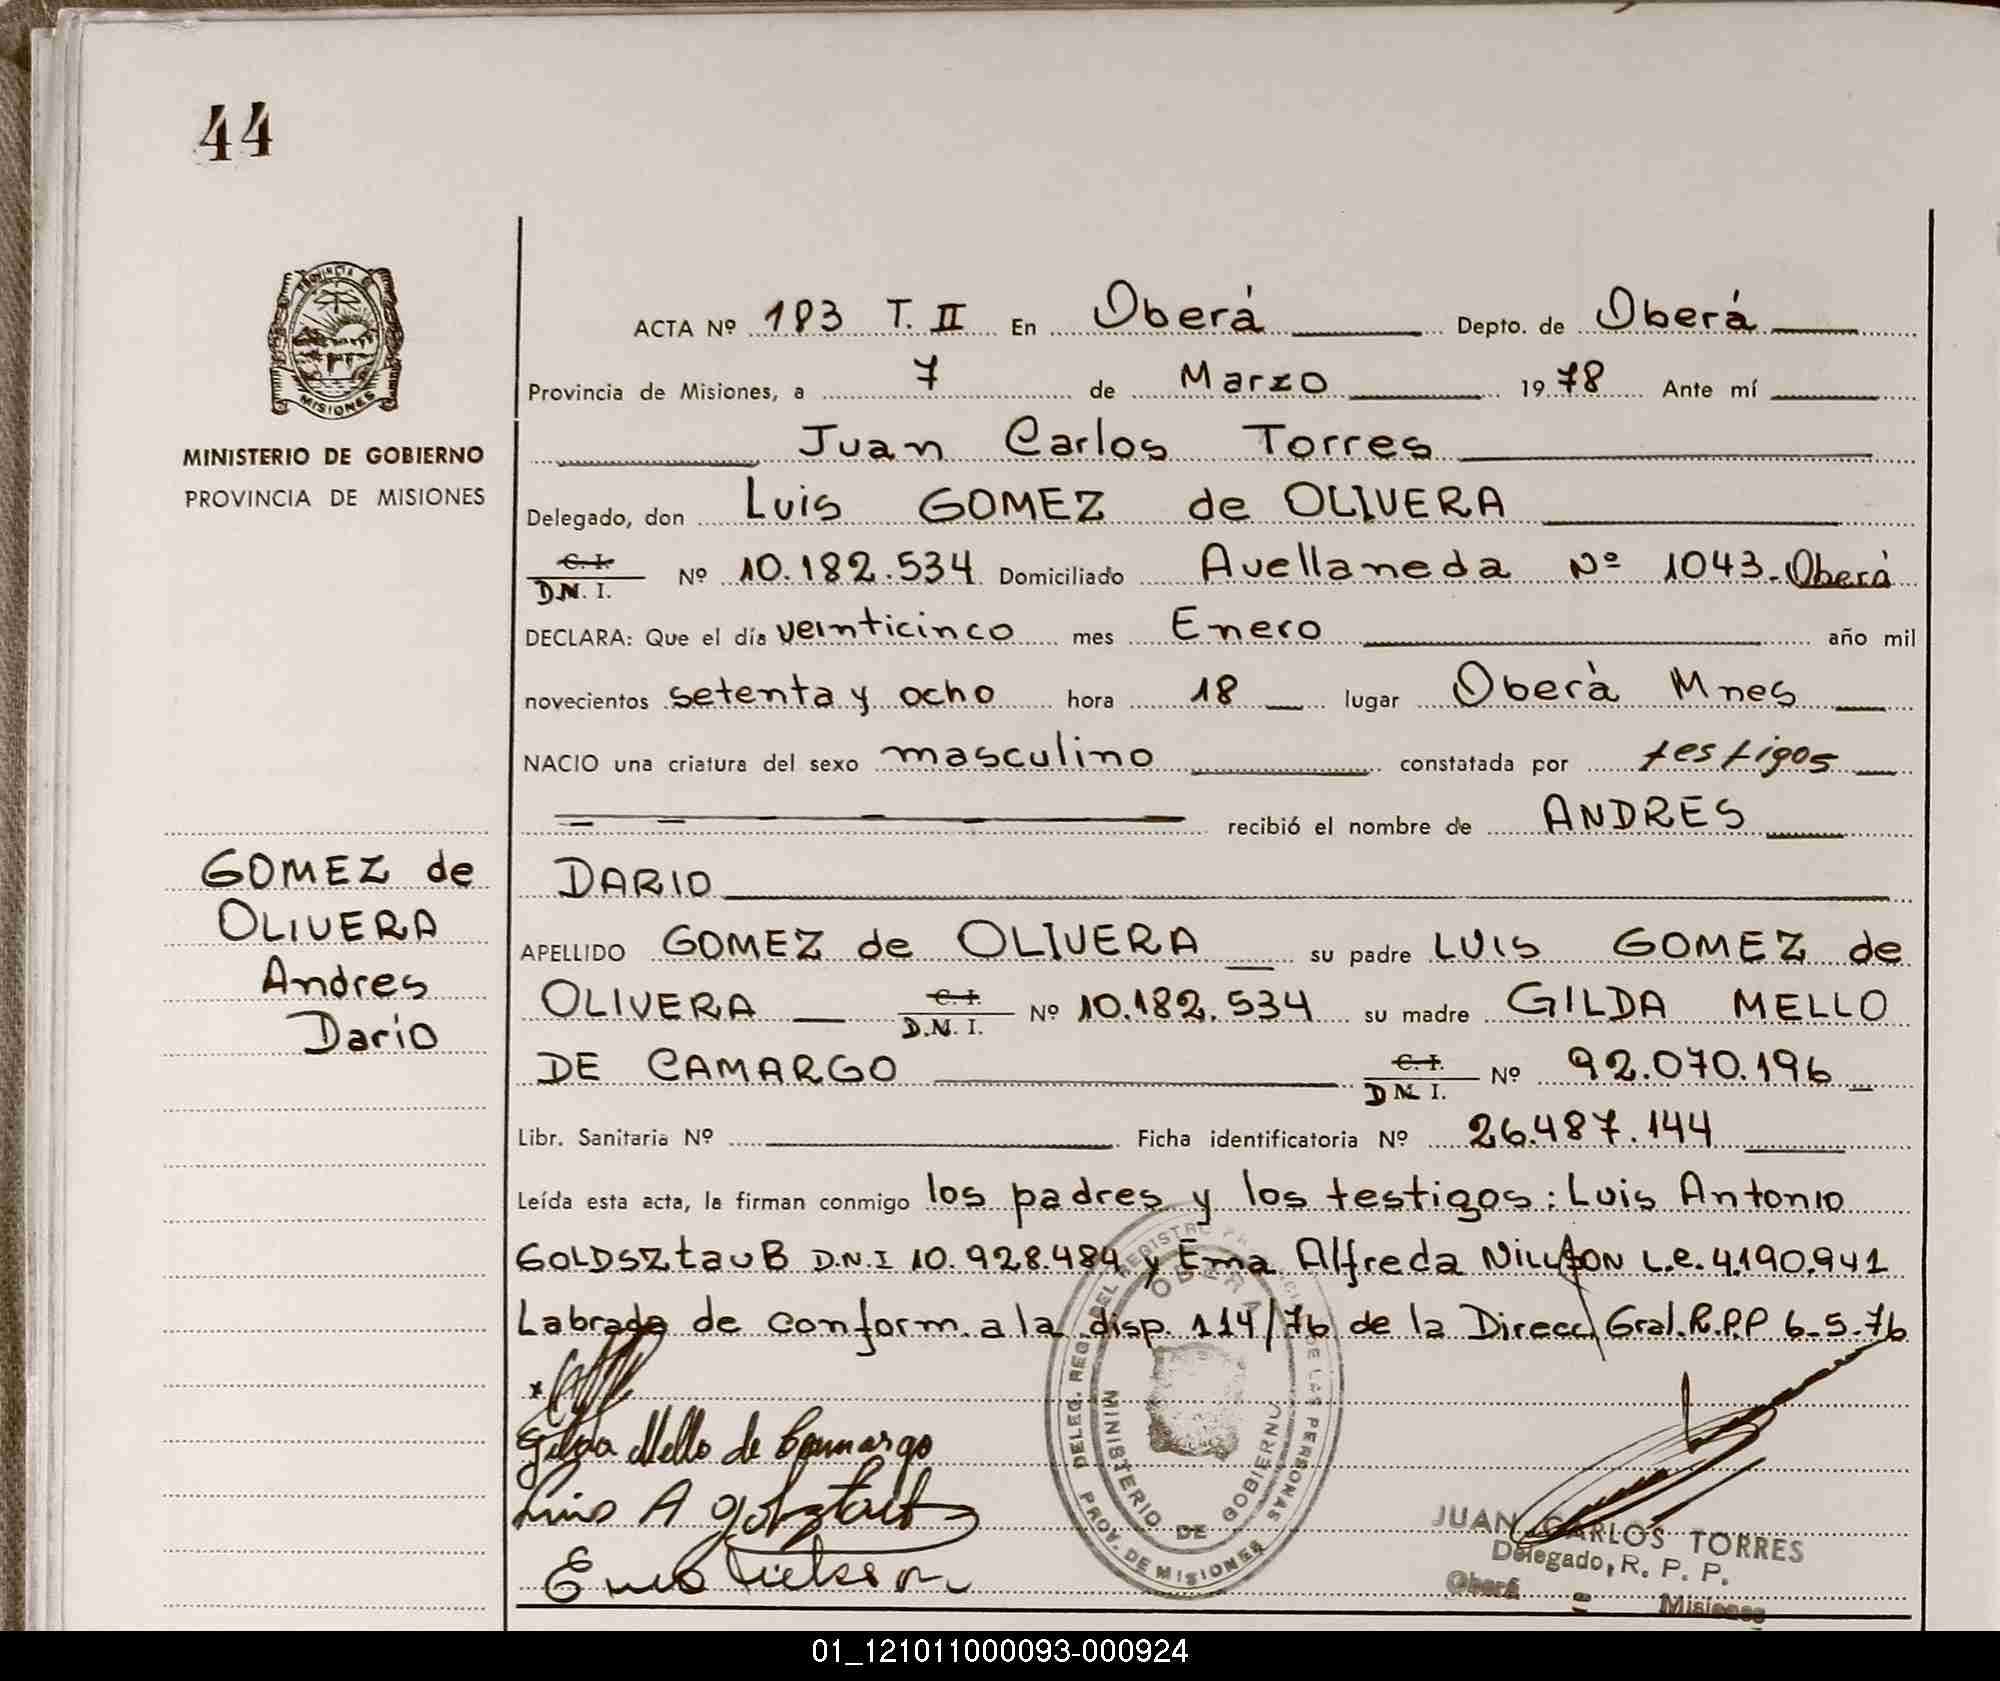 44
PROVINCIA
MISIONES
MINISTERIO DE GOBIERNO
PROVINCIA DE MISIONES
ACTA Nº 183 T. II En Oberá Depto. de Oberá
Provincia de Misiones, a 7 de Marzo 1978 Ante mí
Juan Carlos Torres
Delegado, don Luis GOMEZ de OLIVERA
C. I.
D.N.I. Nº 10.182.534 Domiciliado Avellaneda Nº 1043-Oberá
DECLARA: Que el día veinticinco mes Enero año mil
novecientos setenta y ocho hora 18 lugar Oberà Mnes
NACIO una criatura del sexo masculino constatada por testigos
recibió el nombre de ANDRES
DARIO
GOMEZ de
OLIVERA
Andres
Dario
APELLIDO GOMEZ de OLIVERA su padre LUIS GOMEZ de
OLIVERA C. I. D.N.I. Nº 10.182.534 su madre GILDA MELLO
DE CAMARGO C. I. D N. I. Nº 92.070.196
Libr. Sanitaria Nº Ficha identificatoria Nº 26.487.144
Leída esta acta, la firman conmigo los padres y los testigos: Luis Antonio
GOLDSZtauB D.N.I 10.928.484 y Ema Alfreda L.e. 4.190.941
Labrada de conform. a la disp. 114/76 de la Direcc Gral. R.P.P 6-5-76
Gilda Mello de Camargo
Luis A
DELEG. REG. DEL REGISTRO DE LAS PERSONAS
OBERA
MINISTERIO DE GOBIERNO
PROV. DE MISIONES
JUAN CARLOS TORRES
Delegado, R. P. P.
Oberá - Misiones
01_121011000093-000924